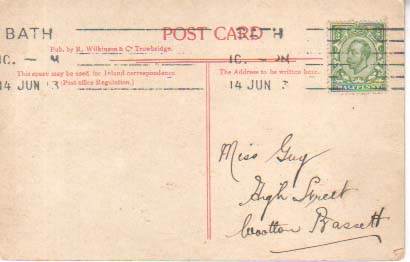 BATH
POST CARD
BATH
Pub. by R. Wilkinson & Co Trowbridge.
This space may be used for Inland correspondence
(Post office Regulation.)
The Address to be written here.
14 JUN 13
14 JUN
HALFPENNY
Miss Guy
High Street
Wootton Bassett